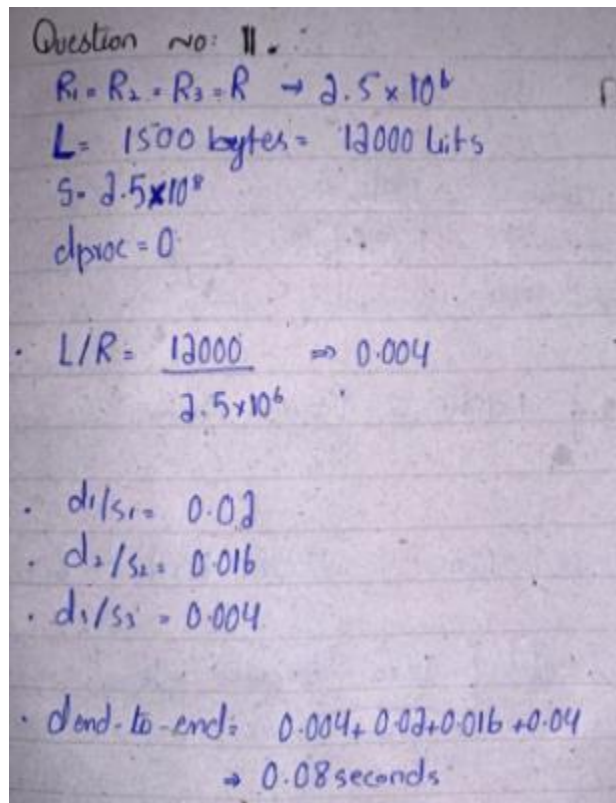 Question no: 11.
R₁ = R₂ = R₃ = R → 2.5 x 10⁶
L = 1500 bytes = 12000 bits
S = 2.5x10⁸
dproc = 0
L/R = 12000 ⇒ 0.004
2.5x10⁶
d₁/s₁ = 0.02
d₂/s₂ = 0.016
d₃/s₃ = 0.004
dend-to-end = 0.004 + 0.02 + 0.016 + 0.04
→ 0.08 seconds